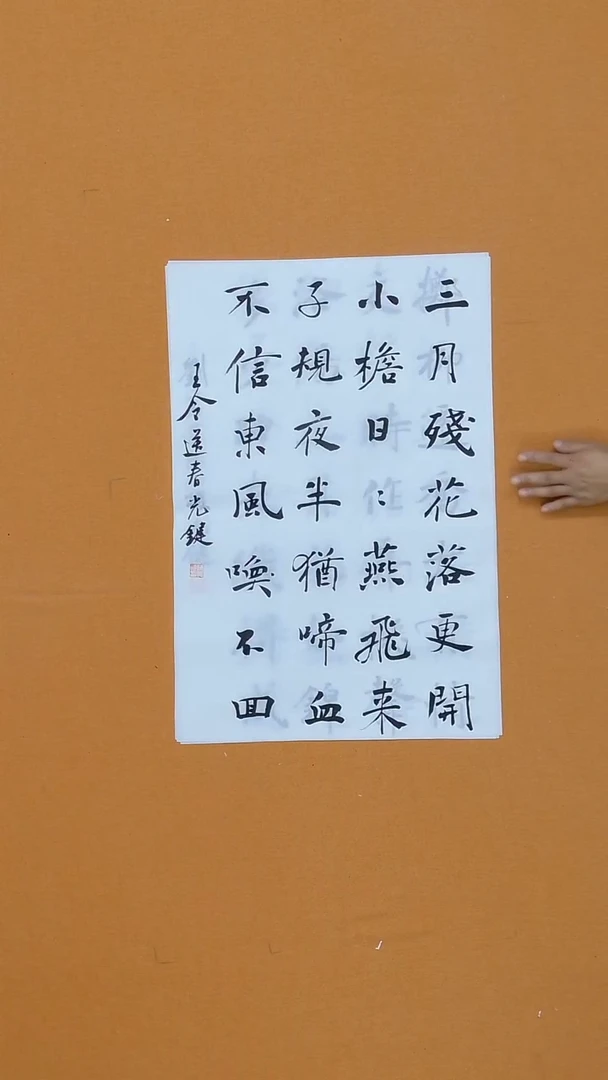 三月殘花落更開
小檐日〻燕飛来
子規夜半猶啼血
不信東風喚不回
王令送春光鍵